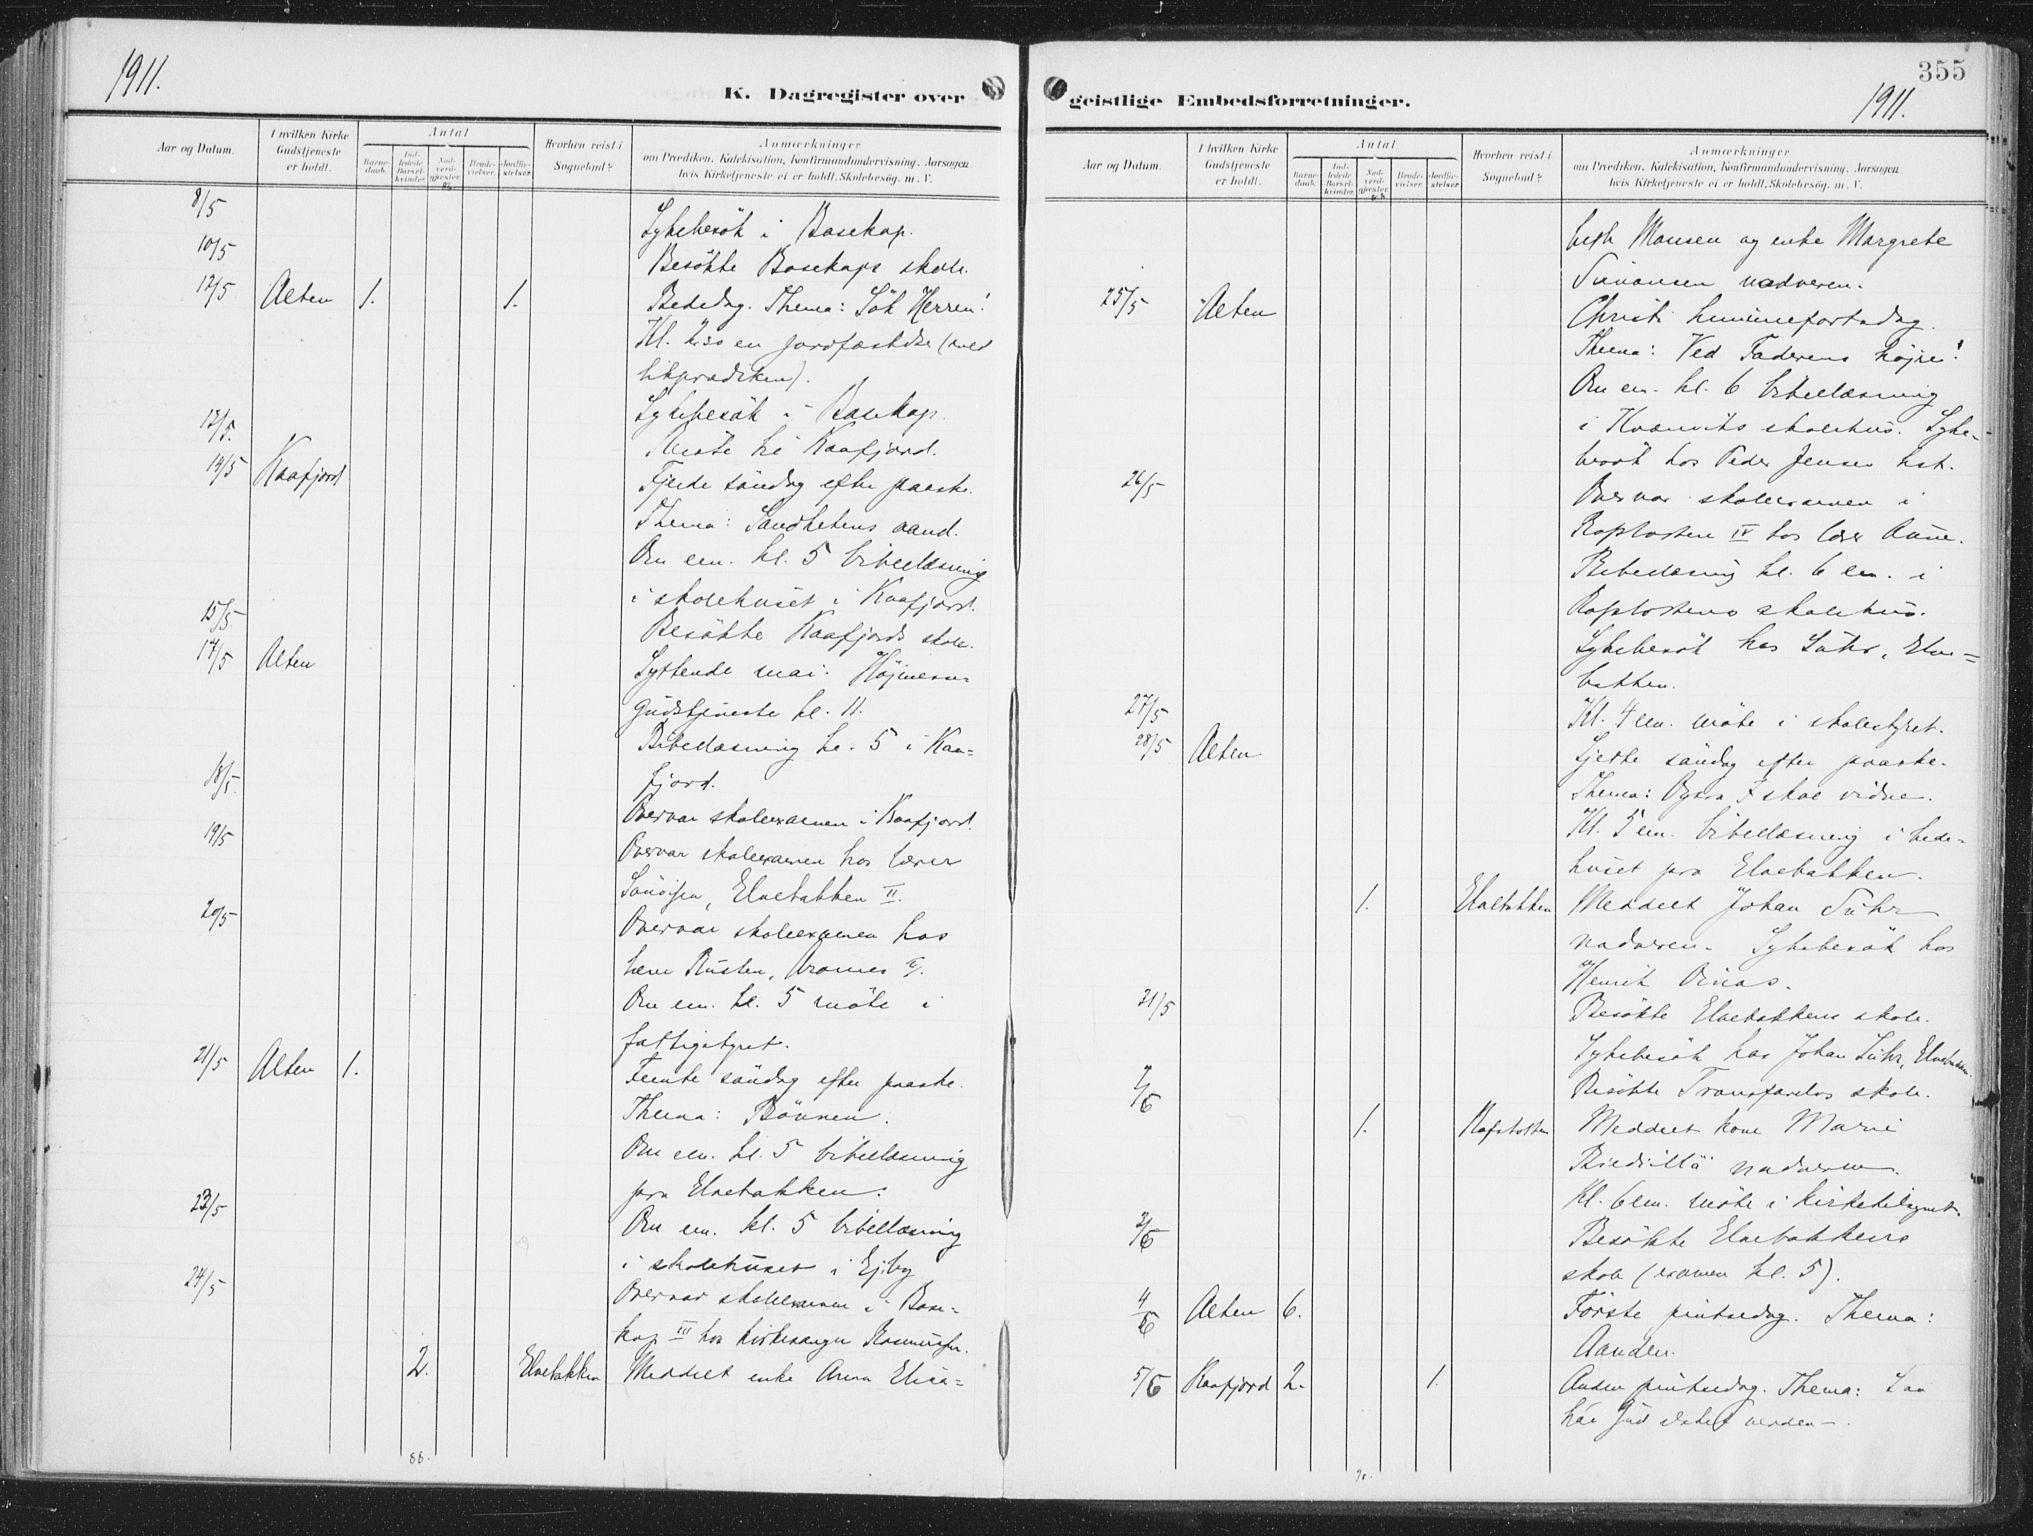 1911.
K. Dagregister over
Aar og Datum.
I hvilken Kirke Gudstjeneste er holdt.
Antal
Barnedaab.
Indledede Barselkvinder.
Nadverdgjester.
Brudevielser.
Jordfæstelser.
Hvorhen reist i Sognebud?
Anmærkninger
om Prædiken, Katekisation, Konfirmandundervisning, Aarsagen
hvis Kirketjeneste ei er holdt, Skolebesøg, m. V.
8/5 Sykebesøk i Bosekop.
10/5 Besøkte Bosekops skole.
12/5 Alten 1. 1. Bededag. Thema: Søk Herren!
Kl. 2.30 en jordfæstelse (med
likprædiken).
Sykebesøk i Bosekop.
13/5. Reiste til Kaafjord.
14/5 Kaafjord Fjerde søndag efter paaske.
Thema: Sandhetens aand.
Om em. kl. 5 bibellæsning
i skolehuset i Kaafjord.
15/5 Besøkte Kaafjords skole.
17/5 Alten Syttende mai. Højmesse
gudstjeneste kl. 11.
Bibellæsning kl. 5 i Kaa-
fjord.
18/5. Overvar skoleexamen i Kaafjord.
19/5 Overvar skoleexamen hos lærer
Elvebakken II.
20/5 Overvar skoleexamen hos
lærer Rusten,
Om em. kl. 5 møte i
fattigstyret.
21/5 Alten 1. Femte søndag efter paaske.
Thema: Bønnen.
Om em. kl. 5 bibellæsning
paa Elvebakken.
23/5 Om em. kl. 5 bibellæsning
i skolehuset i Ejby
24/5 Overvar skoleexamen i Bose-
kop III hos kirkesanger Rasmussen.
2. Elvebakken Meddelt enke Anna Elisa-
88.
355
1911.
geistlige Embedsforretninger.
Aar og Datum.
I hvilken Kirke Gudstjeneste er holdt.
Antal
Barnedaab.
Indledede Barselkvinder.
Nadverdgjester.
Brudevielser.
Jordfæstelser.
Hvorhen reist i Sognebud?
Anmærkninger
om Prædiken, Katekisation, Konfirmandundervisning, Aarsagen
hvis Kirketjeneste ei er holdt, Skolebesøg, m. V.
beth Monsen og enke Margrete
Simonsen nadveren.
25/5 Alten Christi himmelfartsdag.
Thema: Ved Faderens højre!
Om em. kl. 6 bibellæsning
i Kvænviks skolehus. Syke-
besøk hos Peder Jensen
26/5 Overvar skoleexamen i
Rafsbotten IV hos lærer Aune.
Bibellæsning kl. 6 em. i
Rafsbottens skolehus.
Sykebesøk hos Suhr, Elve-
bakken.
27/5 Kl. 4 em. møte i skolestyret.
28/5 Alten Sjette søndag efter paaske.
Thema: Ogsaa I skal vidne.
Kl. 5 em. bibellæsning i bede-
huset paa Elvebakken.
1. Elvebakken Meddelt Johan Suhr
nadveren. Sykebesøk hos
Henrik
31/5 Besøkte Elvebakkens skole.
Sykebesøk hos Johan Suhr, Elvebakken.
1/6 Besøkte Tronsfarelvs skole.
1. Rafsbotten Meddelt kone Marie
nadveren.
Kl. 6 em. møte i kirketilsynet.
2/6 Besøkte Elvebakkens
skole (examen kl. 5).
4/6 Alten 6. Første pintsedag. Thema:
Aanden.
5/6 Kaafjord 2. 1. Anden pintsedag. Thema: Saa
har Gud elsket verden.